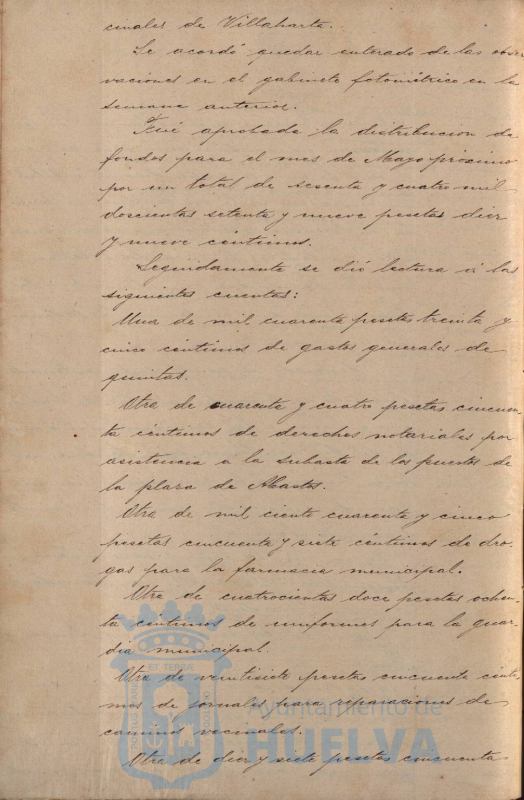 cinales de Villaharta.
Se acordó quedar enterado de las obser
vaciones en el gabinete fotométrico en la
semana anterior.
Fué aprobada la distribucion de
fondos para el mes de Mayo próximo
por un total de sesenta y cuatro mil
doscientas setenta y nueve pesetas diez
y nueve céntimos.
Seguidamente se dió lectura á las
siguientes cuentas:
Una de mil cuarenta pesetas treinta y
cinco céntimos de gastos generales de
quintas.
Otra de cuarenta y cuatro pesetas cincuen-
ta céntimos de derechos notariales por
asistencia a la subasta de los puestos de
la plaza de Abastos.
Otra de mil ciento cuarenta y cinco
pesetas cincuenta y siete céntimos de dro-
gas para la farmacia municipal.
Otra de cuatrocientas doce pesetas ochen-
ta céntimos de uniformes para la guar-
dia municipal.
Otra de veintisiete pesetas cincuenta cénti-
mos de jornales para reparaciones de
caminos vecinales.
Otra de diez y siete pesetas cincuenta
ET TERRÆ
Ayuntamiento de
HUELVA